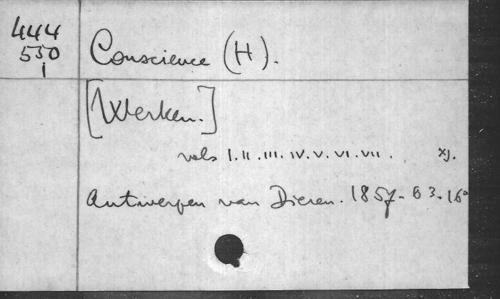 444
550
1
Conscience (H).
[Werken.]
vols I. II. III. IV. V. VI. VII. xj.
Antwerpen van Dieren. 1857-63. 16°